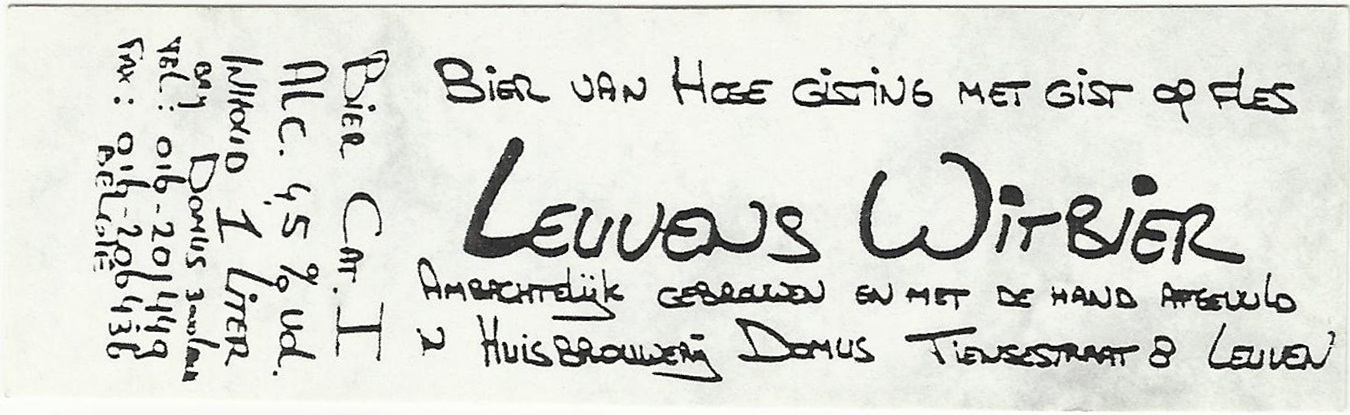 Bier van Hoge gisting met gist op fles
Leuvens Witbier
Ambachtelijk gebrouwen en met de hand afgevuld
in Huisbrouwerij Domus Tiensestraat 8 Leuven
Bier Cat. I
Alc. 4,5 % vol.
Inhoud 1 Liter
Domus 3000 Leuven
Tel.: 016-201449
Fax: 016-206436
België